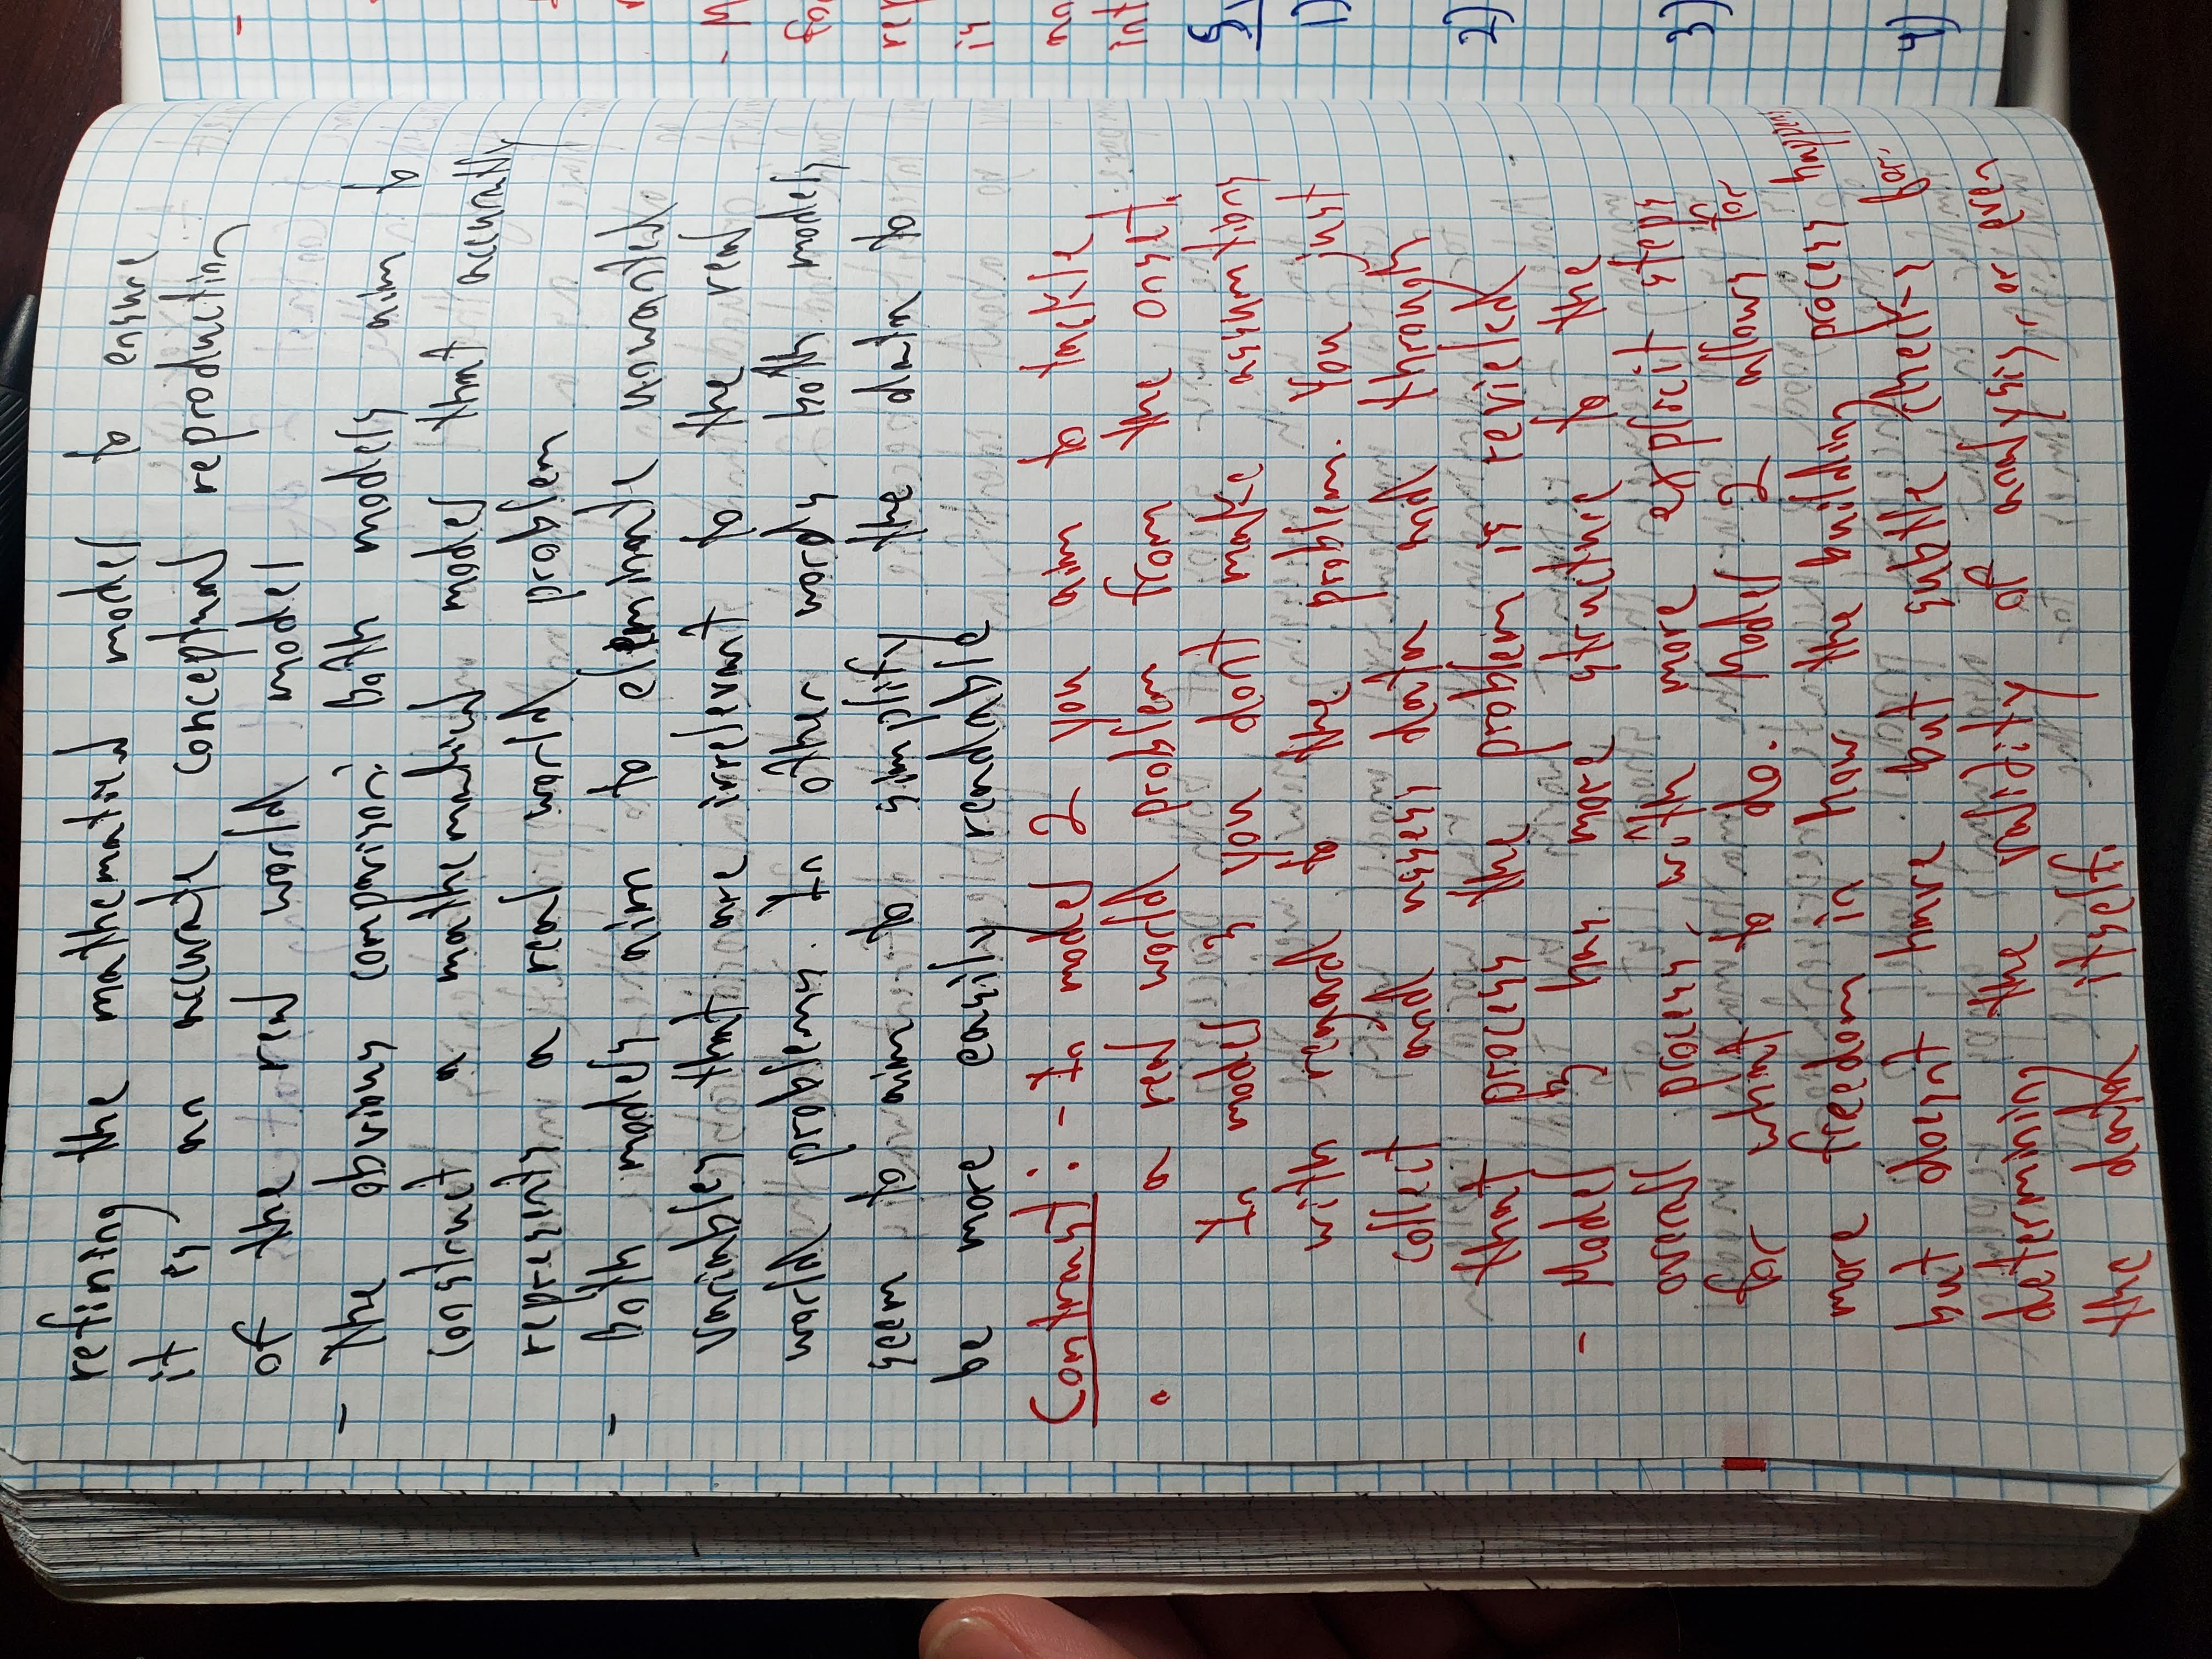 refining the mathematical model to ensure
it is an accurate conceptual reproduction
of the real world model
- The obvious comparison: Both models aim to
construct a mathematical model that accuratly
represents a real world problem
- Both models aim to eleminate unwanted
variables that are irrelevant to the real
world problems. In other words both models
seem to aim to simplify the data to
be more easily readable
Contrast: - In model 2 you aim to tackle
a real world problem from the onset.
In model 3 you dont make assumtions
with regard to the problem. You just
collect and assess data and through
that process the problem is revieled
- Model 3 has more structure to the
overall process, with more explicit steps
for what to do. Model 2 allows for
more freedom in how the building process happens,
but doesnt have but subtle checks for
determining the validity of analysis, or even
the data itself.
- M
fo
rep
is
int
1)
2)
3)
4)